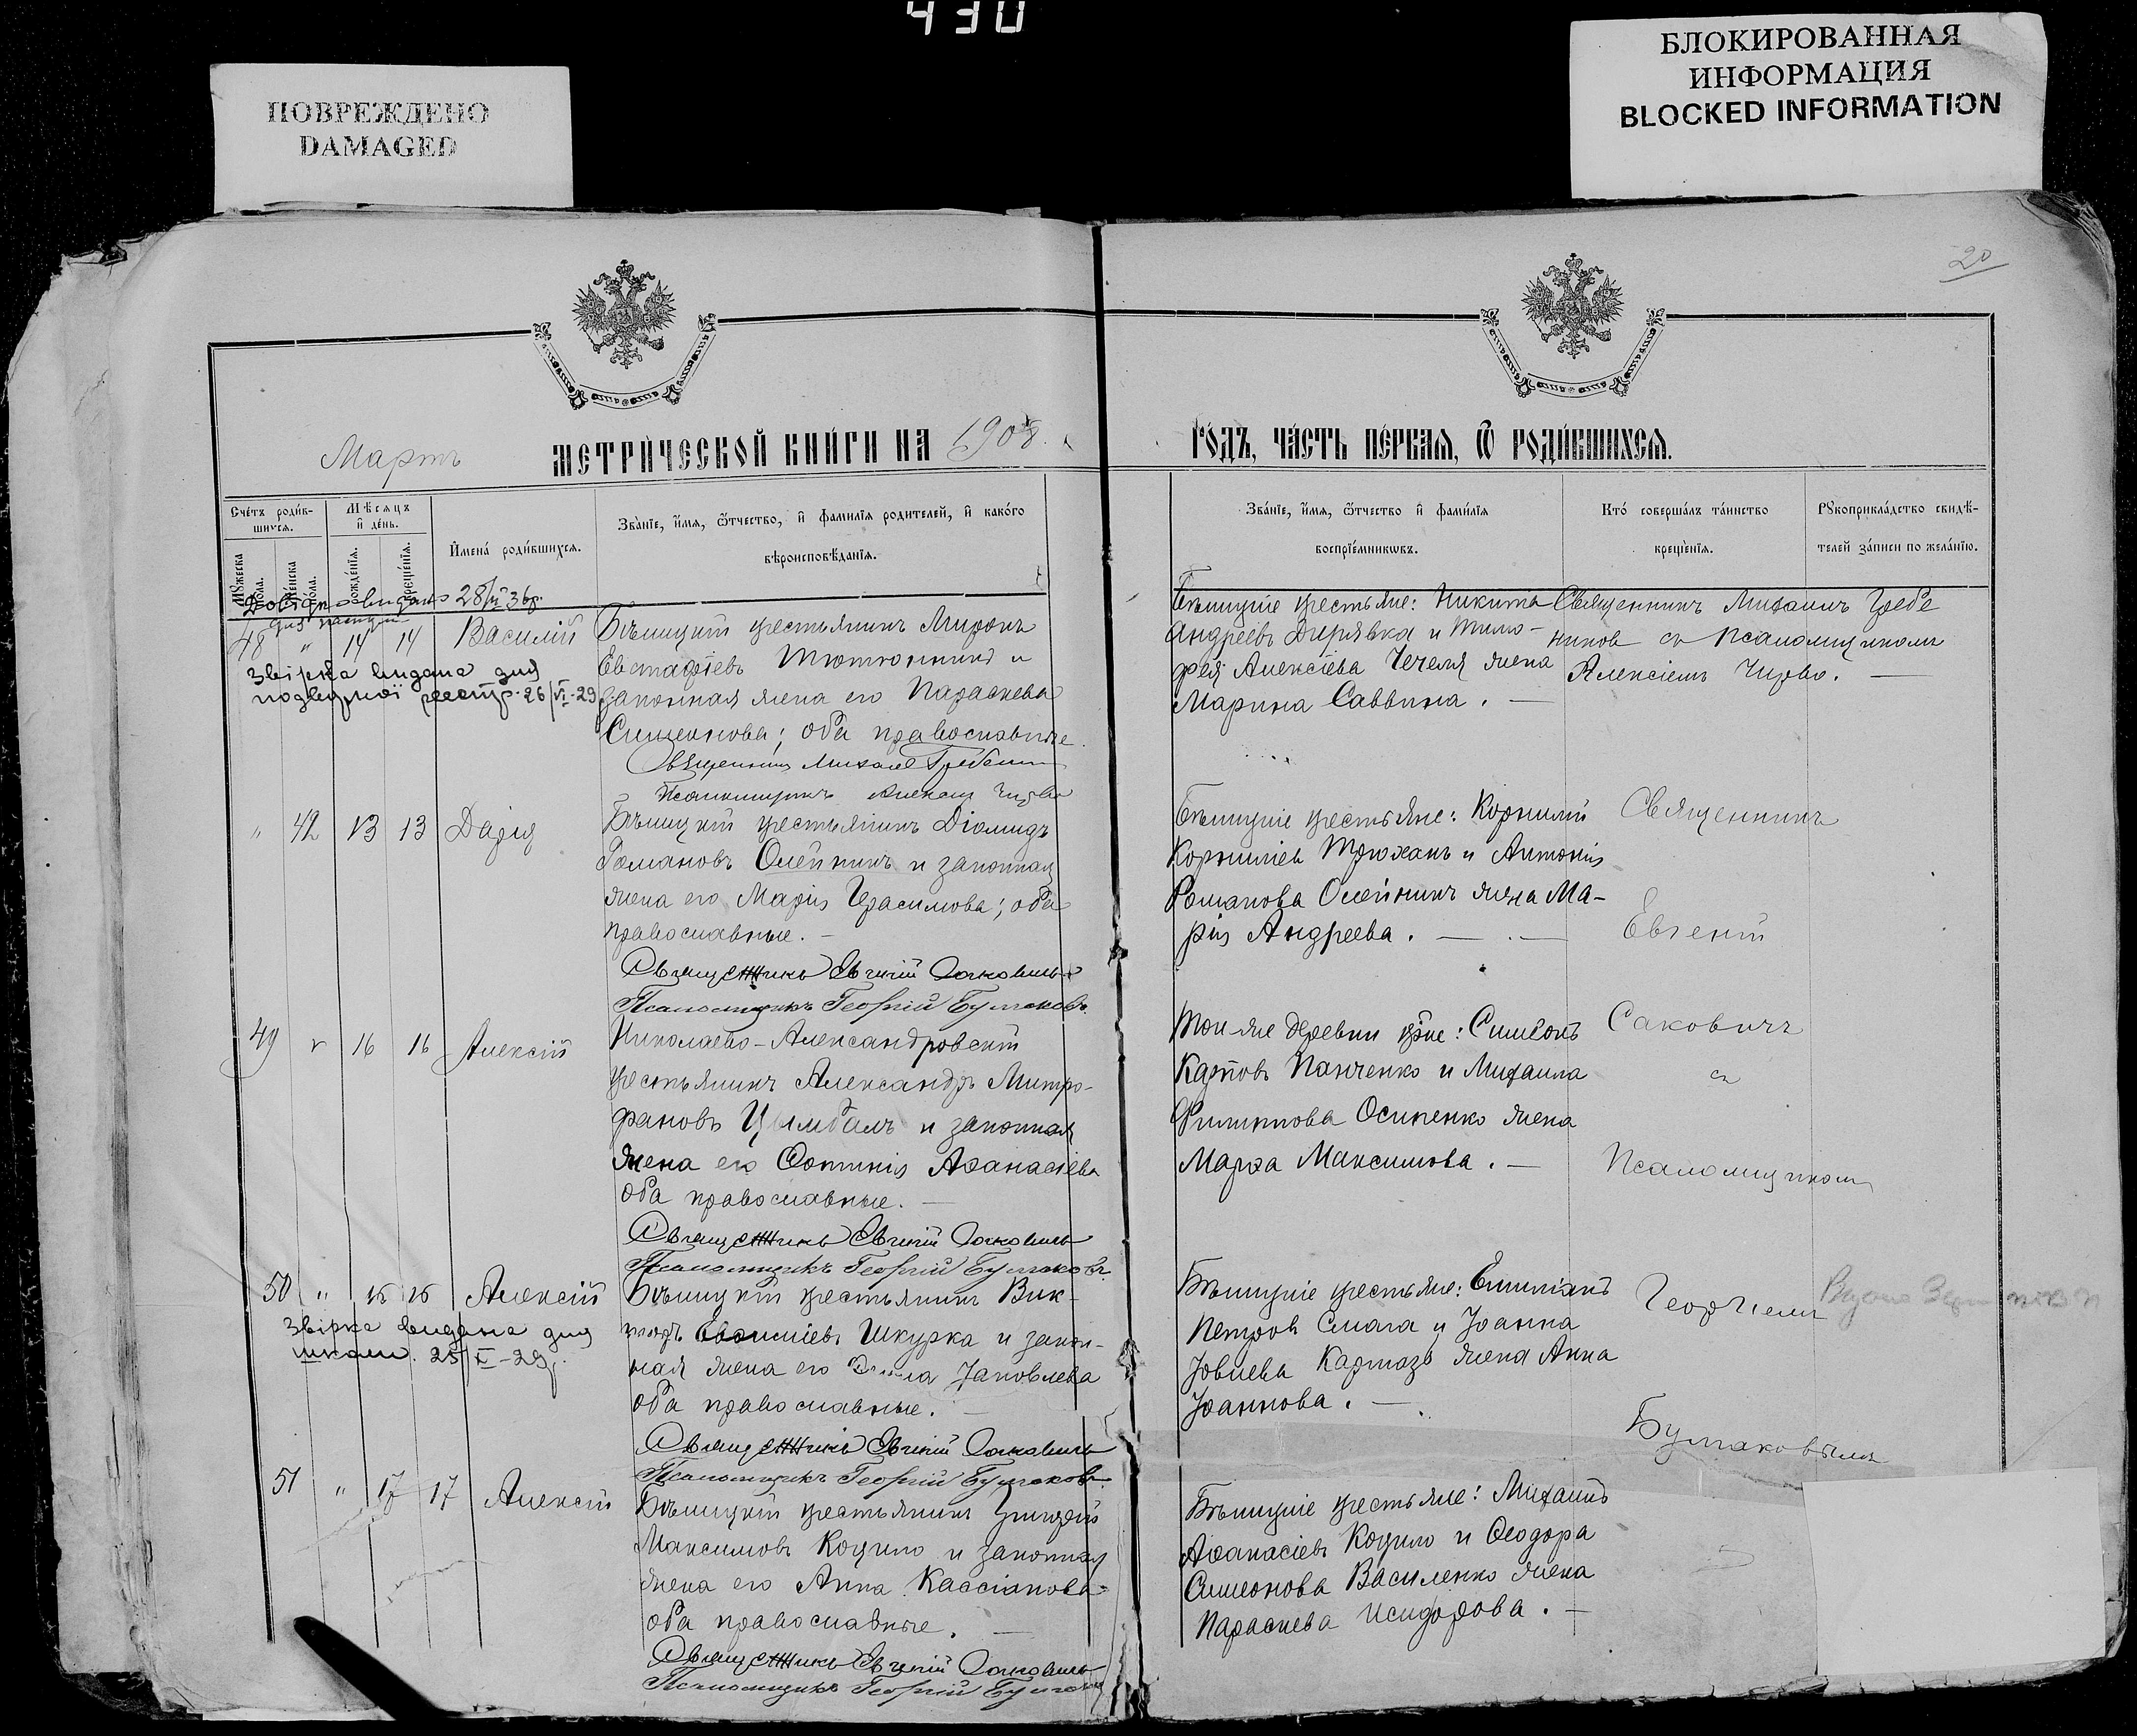 430
ПОВРЕЖДЕНО
DAMAGED
БЛОКИРОВАННАЯ
ИНФОРМАЦИЯ
BLOCKED INFORMATION
20
Мартъ
МЕТРИ́ЧЕСКОЙ КНИ́ГИ НА 1908
ГО́ДЪ, ЧА́СТЬ ПЕ́РВАЯ, Ѿ РОДИ́ВШИХСЯ.
Сче́тъ роди́в-
шихся.
Мꙋжеска пола.
Женска пола.
Мѣ́сяцъ
и҆ де́нь.
рожде́нїя.
креще́нїя.
И҆мена́ роди́вшихся.
Зва́нїе, и҆́мя, ѻ҆́тчество, и҆ фами́лїя роди́телей, и҆ како́го
вѣроисповѣ́данїя.
Зва́нїе, и҆́мя, ѻ҆́тчество и҆ фами́лїя
воспрїе́мникѡвъ.
Кто́ соверша́лъ та́инство
креще́нїя.
Рꙋкоприкла́дство свидѣ́-
телей за́писи по жела́нїю.
48 " 14 14 Василій
Звірка видана для
подвірної реєстр. 26/VI-29
крестьянинъ Миронъ
Евстафіевъ Тютюнникъ и
законная жена его Параскева
Симеонова; оба православные.
Священникъ Михаилъ
Псаломщикъ Алексій
крестьяне: Никита
Андреевъ Дирявка и Тимо-
фея Алексіева Чечеля жена
Марина Саввина. —
Священникъ Михаилъ Гребе
никовъ съ псаломщикомъ
Алексіемъ
" 42 13 13 Дарія
крестьянинъ Діомидъ
Романовъ Олейникъ и законная
жена его Марія Герасимова; оба
православные. —
Священникъ Евгеній Саковичъ
Псаломщикъ Георгій Булгаковъ
крестьяне: Корнилій
Корниліевъ Трюханъ и Антонія
Романова Олейникъ жена Ма-
рія Андреева. —
Священникъ
Евгеній
49 " 16 16 Алексій
Николаево-Александровскій
крестьянинъ Александръ Митро-
фановъ Цымбалъ и законная
жена его Фотинія Аѳанасіева
оба православные. —
Священникъ Евгеній Саковичъ
Псаломщикъ Георгій Булгаковъ
Той-же деревни кр-не: Симеонъ
Карповъ Панченко и Михаила
Филиппова Осипенко жена
Марѳа Максимова. —
Саковичъ
съ
Псаломщикомъ
50 " 16 16 Алексій
Звірка видана для
школи. 25/X-29р.
крестьянинъ Вик-
торъ Шкурка и закон-
ная жена его Іаковлева
оба православные. —
Священникъ Евгеній Саковичъ
Псаломщикъ Георгій Булгаковъ
крестьяне: Емиліанъ
Петровъ Смага и Іоанна
Іовлева Кармазъ жена Анна
Іоаннова. —
Георгіемъ
Булгаковымъ
51 " 17 17 Алексій
крестьянинъ Григорій
Максимовъ Коцило и законная
жена его Анна Кассіанова
оба православные. —
Священникъ Евгеній Саковичъ
Псаломщикъ Георгій Булгаковъ
крестьяне: Михаилъ
Аѳанасіевъ Коцило и Ѳеодора
Симеонова Василенко жена
Параскева Исидорова. —